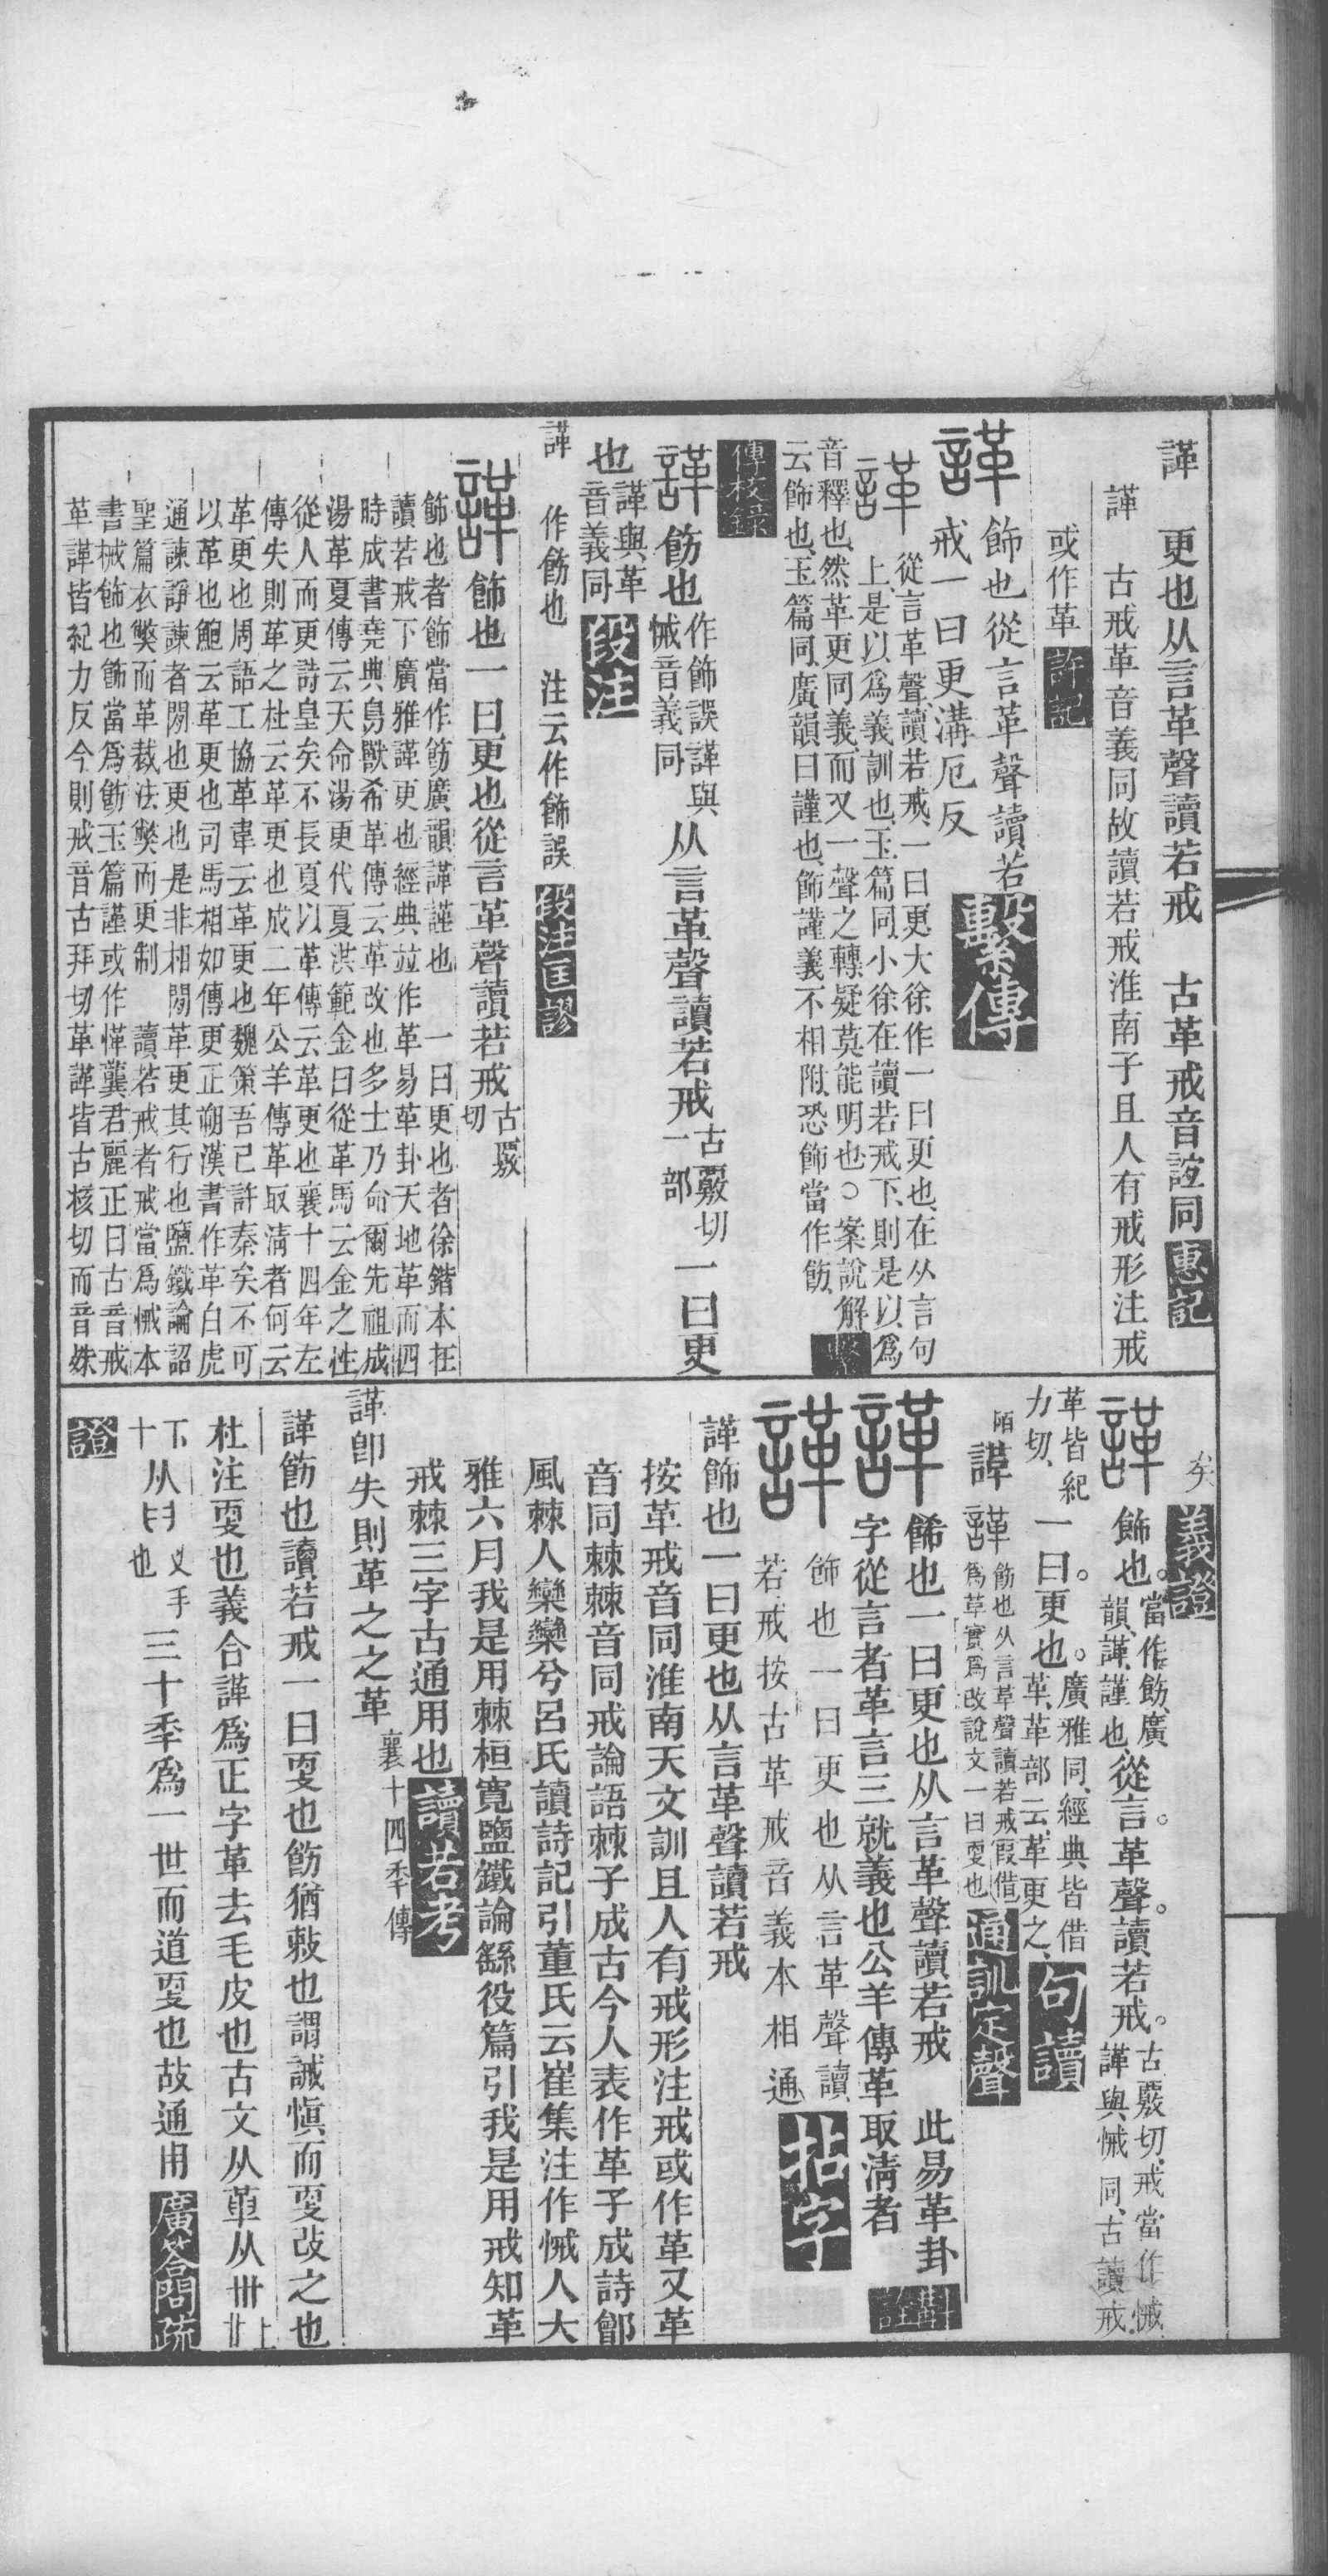 諽 更也从言革聲讀若戒 古革戒音諠同 惠記
諽 古戒革音義同故讀若戒淮南子且人有戒形注戒
或作革 許記
諽 飾也從言革聲讀若
戒一曰更溝厄反 繫傳
諽 從言革聲讀若戒一曰更大徐作一曰更也在从言句
上是以爲義訓也玉篇同小徐在讀若戒下則是以爲
音釋也然革更同義而又一聲之轉疑莫能明也○案說解
云飾也玉篇同廣韻曰謹也飾謹義不相附恐飾當作飭 繫
傳校錄
諽 飭也 作飾誤諽與
悈音義同 从言革聲讀若戒 古覈切
一部 一曰更
也 諽與革
音義同 段注
諽 作飭也 注云作飾誤 段注匡謬
諽 飾也一曰更也從言革聲讀若戒 古覈
切
飾也者飾當作飭廣韻諽謹也 一曰更也者徐鍇本在
讀若戒下廣雅諽更也經典竝作革易革卦天地革而四
時成書堯典鳥獸希革傳云革改也多士乃命爾先祖成
湯革夏傳云天命湯更代夏洪範金曰從革馬云金之性
從人而更詩皇矣不長夏以革傳云革更也襄十四年左
傳失則革之杜云革更也成二年公羊傳革取淸者何云
革更也周語工協革韋云革更也魏策吾已許秦矣不可
以革也鮑云革更也司馬相如傳更正朔漢書作革白虎
通諫諍諫者閒也更也是非相閒革更其行也鹽鐵論詔
聖篇衣弊而革裁法弊而更制 讀若戒者戒當爲悈本
書悈飾也飾當爲飭玉篇諽或作愅龔君麗正曰古音戒
革諽皆紀力反今則戒音古拜切革諽皆古核切而音殊
矣 義證
諽 飾也。當作飭廣
韻諽謹也 從言。革聲。讀若戒。古覈切戒當作悈
諽與悈同古讀戒
革皆紀
力切 一曰。更也。廣雅同經典皆借
革革部云革更之 句讀
陌 諽 諽 飭也从言革聲讀若戒叚借
爲革實爲改說文一曰㪅也 通訓定聲
諽 餙也一曰更也从言革聲讀若戒 此易革卦
字從言者革言三就義也公羊傳革取淸者 斠詮
諽 飾也一曰更也从言革聲讀
若戒按古革戒音義本相通 拈字
諽飾也一曰更也从言革聲讀若戒
按革戒音同淮南天文訓且人有戒形注戒或作革又革
音同棘棘音同戒論語棘子成古今人表作革子成詩鄁
風棘人欒欒兮呂氏讀詩記引董氏云崔集注作悈人大
雅六月我是用棘桓寬鹽鐵論繇役篇引我是用戒知革
戒棘三字古通用也 讀若考
諽卽失則革之之革 襄十四季傳
諽飭也讀若戒一曰㪅也飭猶敕也謂誡愼而㪅改之也
杜注㪅也義合諽爲正字革去毛皮也古文从革从卅 上
廿
下
十 从𦥑 叉手
也 三十秊爲一世而道㪅也故通用 廣答問疏
證